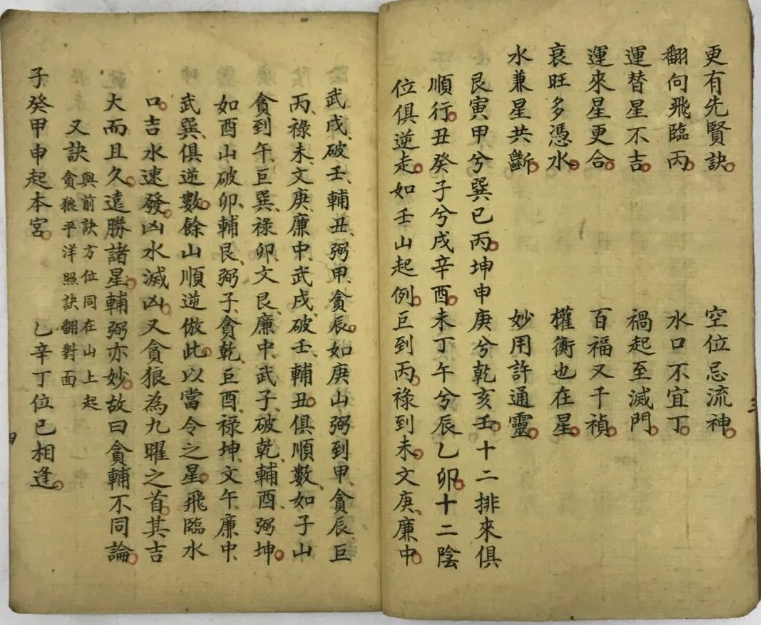 更有先賢訣 空位忌流神
翻向飛臨丙 水口不宜丁
運替星不吉 禍起至滅門
運來星更合 百福又千禎
衰旺多憑水 權衡也在星
水兼星共斷 妙用許通靈
艮寅甲兮巽巳丙坤申庚兮乾亥壬十二排來俱
順行丑癸子兮戌辛酉未丁午兮辰乙卯十二陰
位俱逆走如壬山起例巨到丙祿到未文庚廉中
武戌破壬輔丑弼甲貪辰如庚山弼到甲貪辰巨
丙祿未文庚廉中武戌破壬輔丑俱順數如子山
貪到午巨巽祿卯文艮廉中武子破乾輔酉弼坤
如酉山破卯輔艮弼子貪乾巨酉祿坤文午廉中
武巽俱逆數餘山順逆倣此以當令之星飛臨水
口吉水速發凶水滅凶又貪狼為九曜之首其吉
大而且久遠勝諸星輔弼亦妙故曰貪輔不同論
又訣 與前訣方位同在山上起
貪狼平洋照訣翻對面
子癸甲申起本宮 乙辛丁位巳相逢
三
四